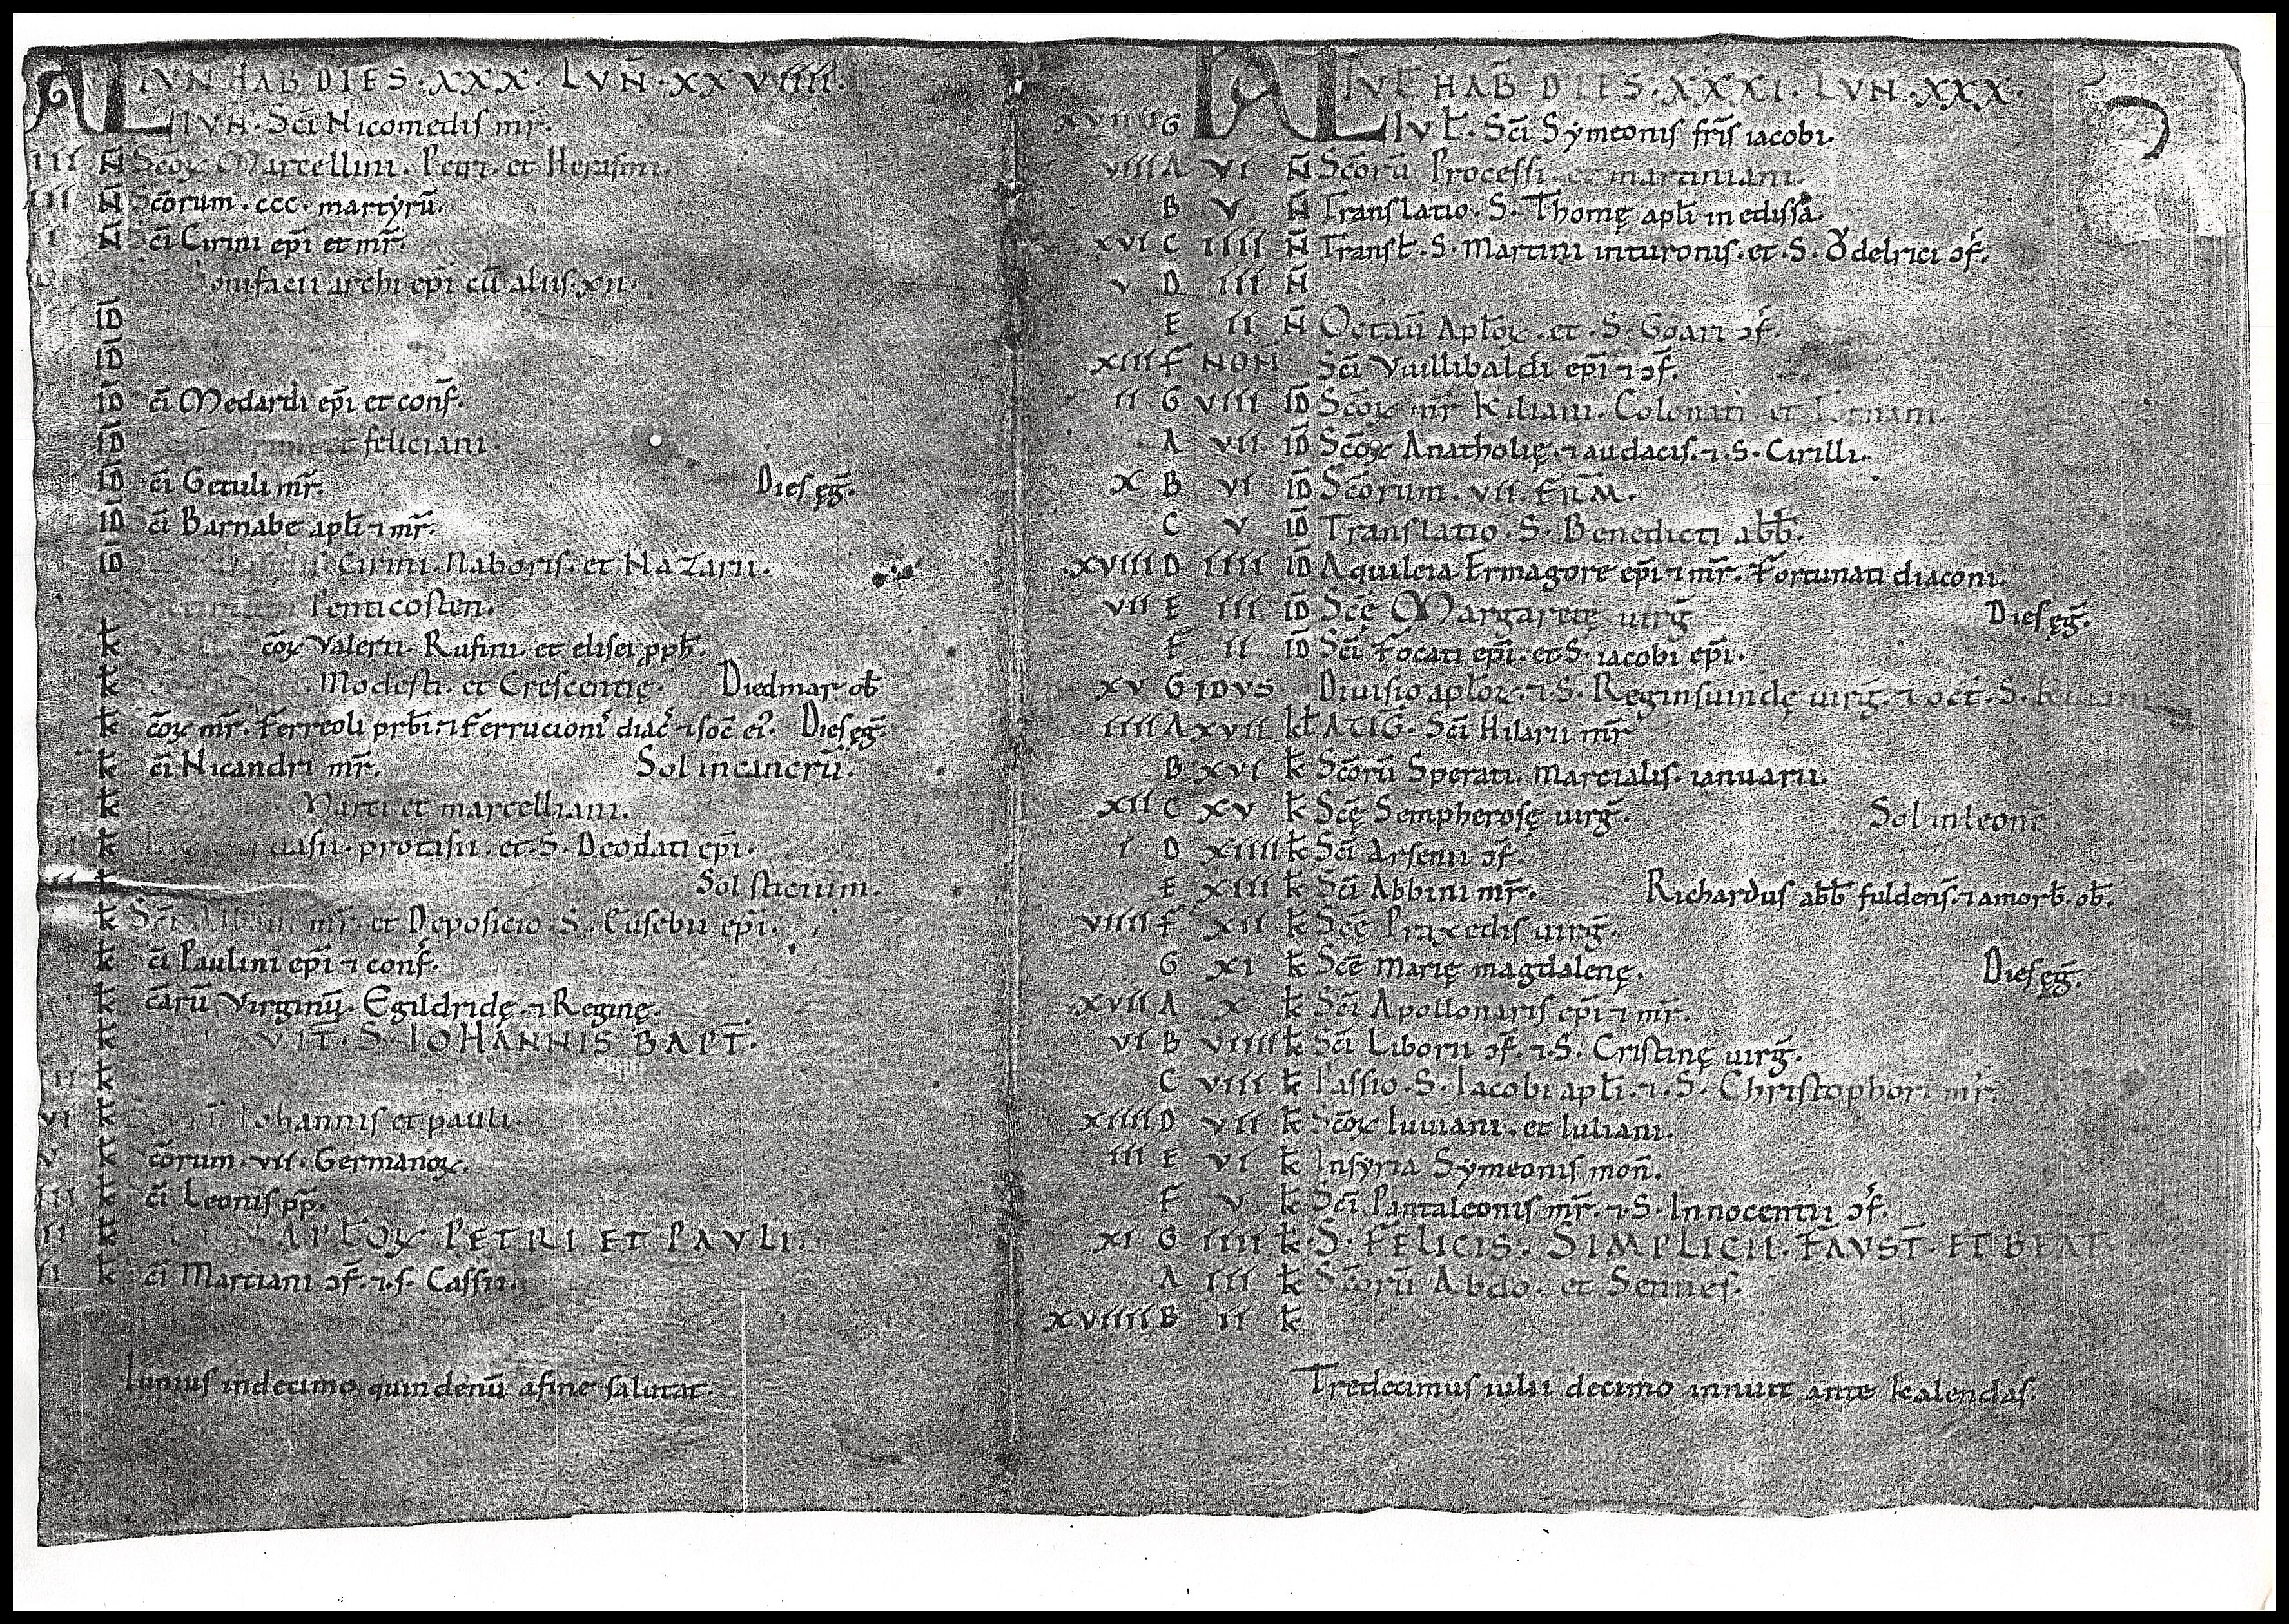 KL IVN HAB DIES · XXX · LVN̄ · XXVIIII ·
IVN · Sc̄i Nicomedis mr̄.
III N̄ Sc̄oꝝ Marcellini · Petri · et Herasmi ·
III N̄ Sc̄orum · ccc · martyrū.
II N̄ Sc̄i Cirini ep̄i et mr̄.
Bonifacii archiep̄i cū aliis · xii ·
ID̄
ID̄
ID̄ c̄i Medardi ep̄i et conf̄.
ID̄ et feliciani ·
ID̄ c̄i Getuli mr̄. Dies ęḡ.
ID̄ c̄i Barnabę apl̄i ⁊ mr̄.
ID̄ Cirini · Naboris · et Nazarii ·
Penticosten ·
k̄ c̄oꝝ Valerii · Rufini · et elisei pph̄.
k̄ Modesti · et Crescentię · Diedmar ob̄
k̄ c̄oꝝ mr̄. Ferreoli prb̄i · ⁊ Ferrucioni diac̄ ⁊ soc̄ ei᾽. Dies ęḡ.
k̄ c̄i Nicandri mr̄. Sol in cancrū.
k̄ Marci et marcelliani ·
k̄ uasii · protasii · et · S · Deodati ep̄i ·
k̄ Solsticium.
k̄ Sc̄i Albini mr̄ · et Deposicio · S · Eusebii ep̄i ·
k̄ c̄i Paulini ep̄i ⁊ conf̄.
k̄ c̄arū Virginū · Egildridę · ⁊ Reginę.
k̄ VIT̄ · S · IOHANNIS BAPT̄ ·
k̄
VI k̄ Iohannis et pauli ·
V k̄ c̄orum · vii · Germanoꝝ.
III k̄ c̄i Leonis pp̄.
II k̄ APL̄Oꝝ PETRI ET PAVLI ·
II k̄ c̄i Marciani ɔf̄. ⁊ · s · Cassii ·
Iunius in decimo quindenū a fine salutat ·
KL IVL̄ HAB̄ DIES · XXXI · LVN · XXX ·
XVIIII G IVL̄ · Sc̄i Symeonis fr̄is iacobi ·
VIII A VI N̄ Sc̄orū Processi · et martiniani ·
B V N̄ Translatio · S · Thomę apl̄i in edissa ·
XVI C IIII N̄ Transl̄ · S · Martini in turonis · et · S · Ǒdelrici ɔf̄.
V D III N̄
E II N̄ Octaū Apl̄oꝝ · et · S · Goari ɔf̄.
XIII F NON Sc̄i Vuillibaldi ep̄i ⁊ ɔf̄.
II G VIII ID̄ Sc̄oꝝ mr̄ Kiliani · Colonati et Totnani ·
A VII ID̄ Sc̄oꝝ Anatholię · ⁊ audacis · ⁊ · S · Cirilli ·
X B VI ID̄ Sc̄orum · vii · FR̄M ·
C V ID̄ Translatio · S · Benedicti abb̄.
XVIII D IIII ID̄ Aquileia Ermagore ep̄i ⁊ mr̄. Fortunati diaconi ·
VII E III ID̄ Sc̄ę Margaretę uirḡ Dies ęḡ.
F II ID̄ Sc̄i Focati ep̄i · et S · iacobi ep̄i ·
XV G IDVS Diuisio apl̄oꝝ · ⁊ S · Reginsuindę uirḡ · ⁊ oct̄ · S · Kiliani
IIII A XVII kl̄ AVG · Sc̄i Hilarii mr̄
B XVI k̄ Sc̄orū Sperati · Marcialis · ianuarii ·
XII C XV k̄ Sc̄ę Sempherosę uirḡ · Sol in leone
I D XIIII k̄ Sc̄i Arsenii ɔf̄.
E XIII k̄ Sc̄i Abbini mr̄. Richardus abb̄ fuldens̄ · ⁊ amorb̄ · ob̄.
VIIII F XII k̄ Sc̄ę Praxedis uirḡ ·
G XI k̄ Sc̄ę Marię magdalenę · Dies ęḡ.
XVII A X k̄ Sc̄i Apollonaris ep̄i ⁊ mr̄.
VI B VIIII k̄ Sc̄i Liborii ɔf̄. ⁊ · S · Cristinę uirḡ ·
C VIII k̄ Passio · S · Iacobi apl̄i · ⁊ · S · Christophori mr̄.
XIIII D VII k̄ Sc̄oꝝ Iuuiani · et Iuliani ·
III E VI k̄ In syria Symeonis mon̄.
F V k̄ Sc̄i Pantaleonis mr̄. ⁊ · S · Innocentii ɔf̄.
XI G IIII k̄ S · FELICIS · SIMPLICII · FAVST̄ · ET BEAT
A III k̄ Sc̄orū Abdo · et Sennes ·
XVIIII B II k̄
Tredecimus iulii decimo innuit ante kalendas ·